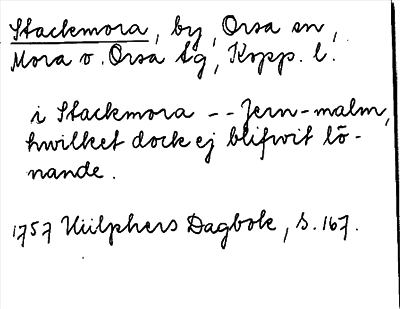 Stackmora, by, Orsa sn,
Mora o. Orsa tg, Kopp. l.
i Stackmora -- Jern-malm,
hwilket dock ej blifwit lö-
nande.
1757 Hülphers Dagbok, s. 167.